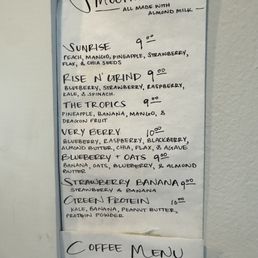 ALL MADE WITH
ALMOND MILK
SUNRISE 9.00
PEACH, MANGO, PINEAPPLE, STRAWBERRY,
FLAX, & CHIA SEEDS
RISE N' GRIND 9.00
BLUEBERRY, STRAWBERRY, RASPBERRY,
KALE, & SPINACH
THE TROPICS 9.00
PINEAPPLE, BANANA, MANGO, &
DRAGON FRUIT
VERY BERRY 10.00
BLUEBERRY, RASPBERRY, BLACKBERRY,
ALMOND BUTTER, CHIA, FLAX, & AGAVE
BLUEBERRY + OATS 9.00
BANANA, OATS, BLUEBERRY, & ALMOND
BUTTER
STRAWBERRY BANANA 9.00
STRAWBERRY & BANANA
GREEN PROTEIN 10.00
KALE, BANANA, PEANUT BUTTER,
PROTEIN POWDER
COFFEE MENU